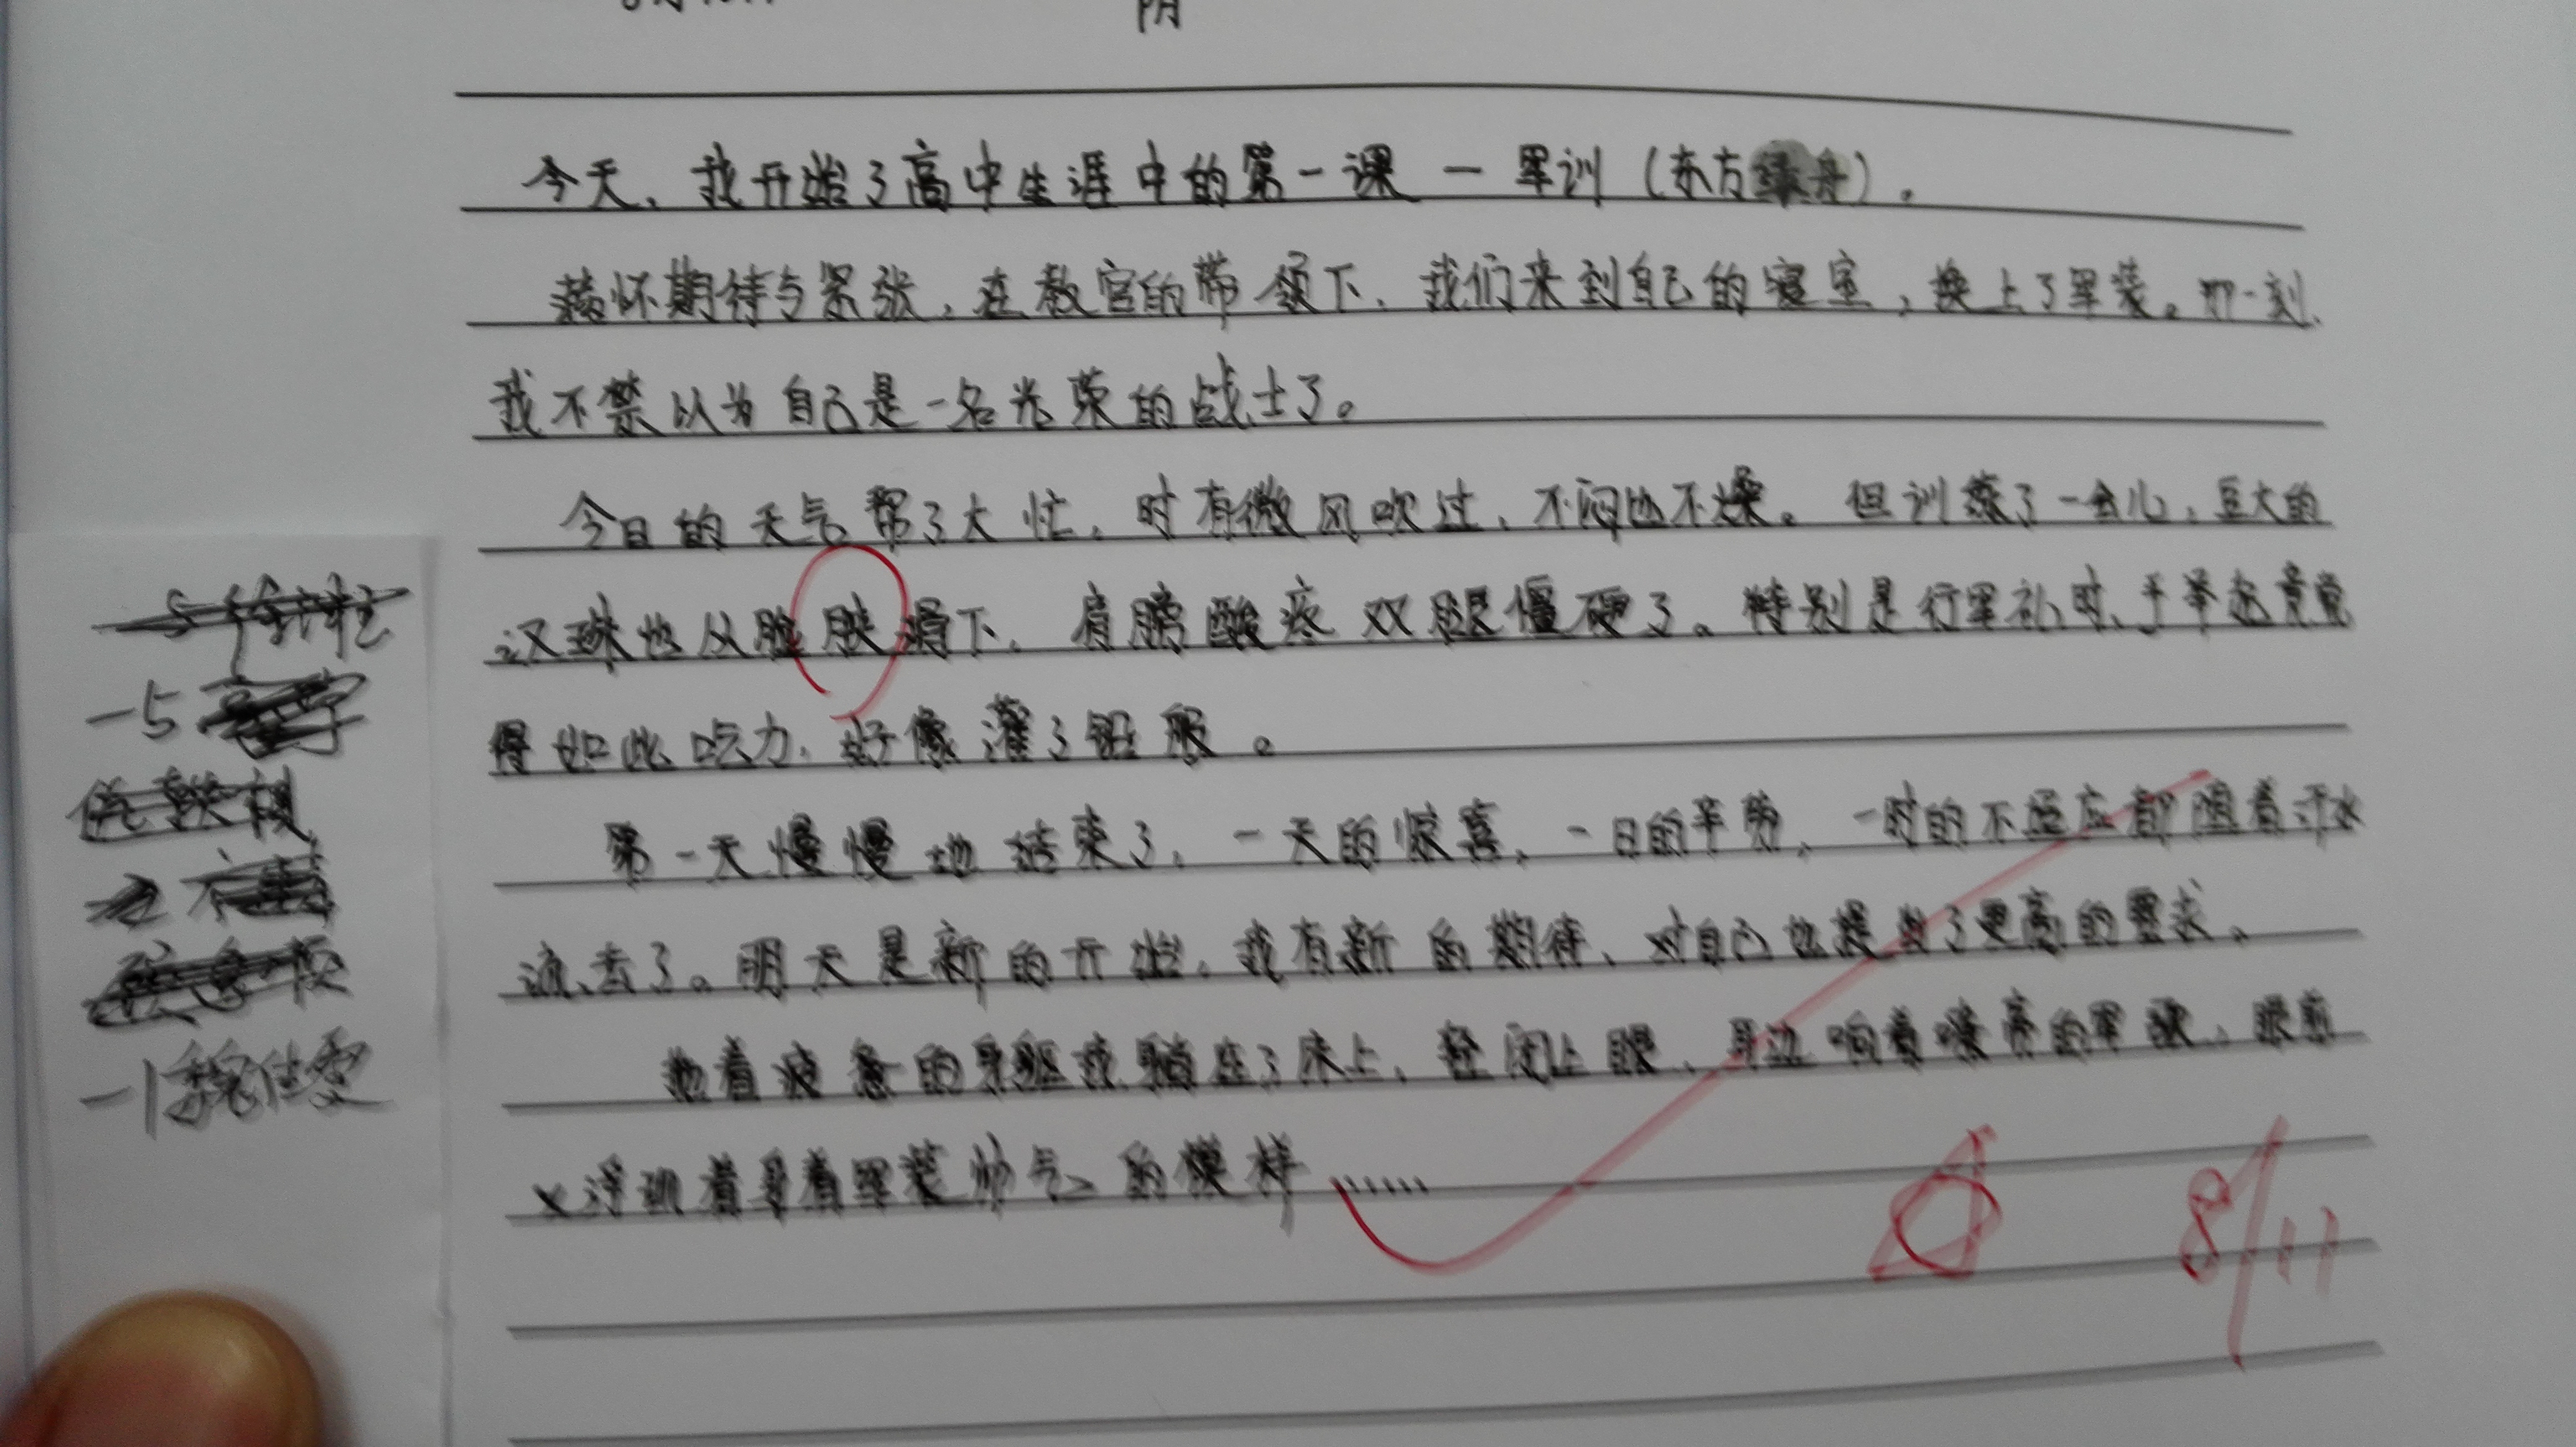 阴
今天，我开始了高中生涯中的第一课 — 军训（东方绿舟）。
满怀期待与紧张，在教官的带领下，我们来到自己的寝室，换上了军装。那一刻，
我不禁以为自己是一名光荣的战士了。
今日的天气帮了大忙，时有微风吹过，不闷也不燥。但训练了一会儿，豆大的
汉珠也从脸肤滑下，肩膀酸疼 双腿僵硬了。特别是行军礼时，手举起竟觉
得如此吃力，好像灌了铅般。
第一天慢慢地结束了，一天的惊喜，一日的辛劳，一时的不适应都随着汗水
流去了。明天是新的开始，我有新的期待，对自己也提出了更高的要求。
拖着疲惫的身躯我躺在了床上，轻闭上眼，耳边响着嘹亮的军歌，眼前
又浮现着身着军装帅气的模样……
-5
-1 魏佳雯
8/11